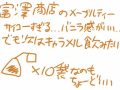 富澤商店のメープルティー
サイコーすぎる…バニラ感が!!…
でもリスはキャラメル飲みたい
×10発なのも
ちょーどいい